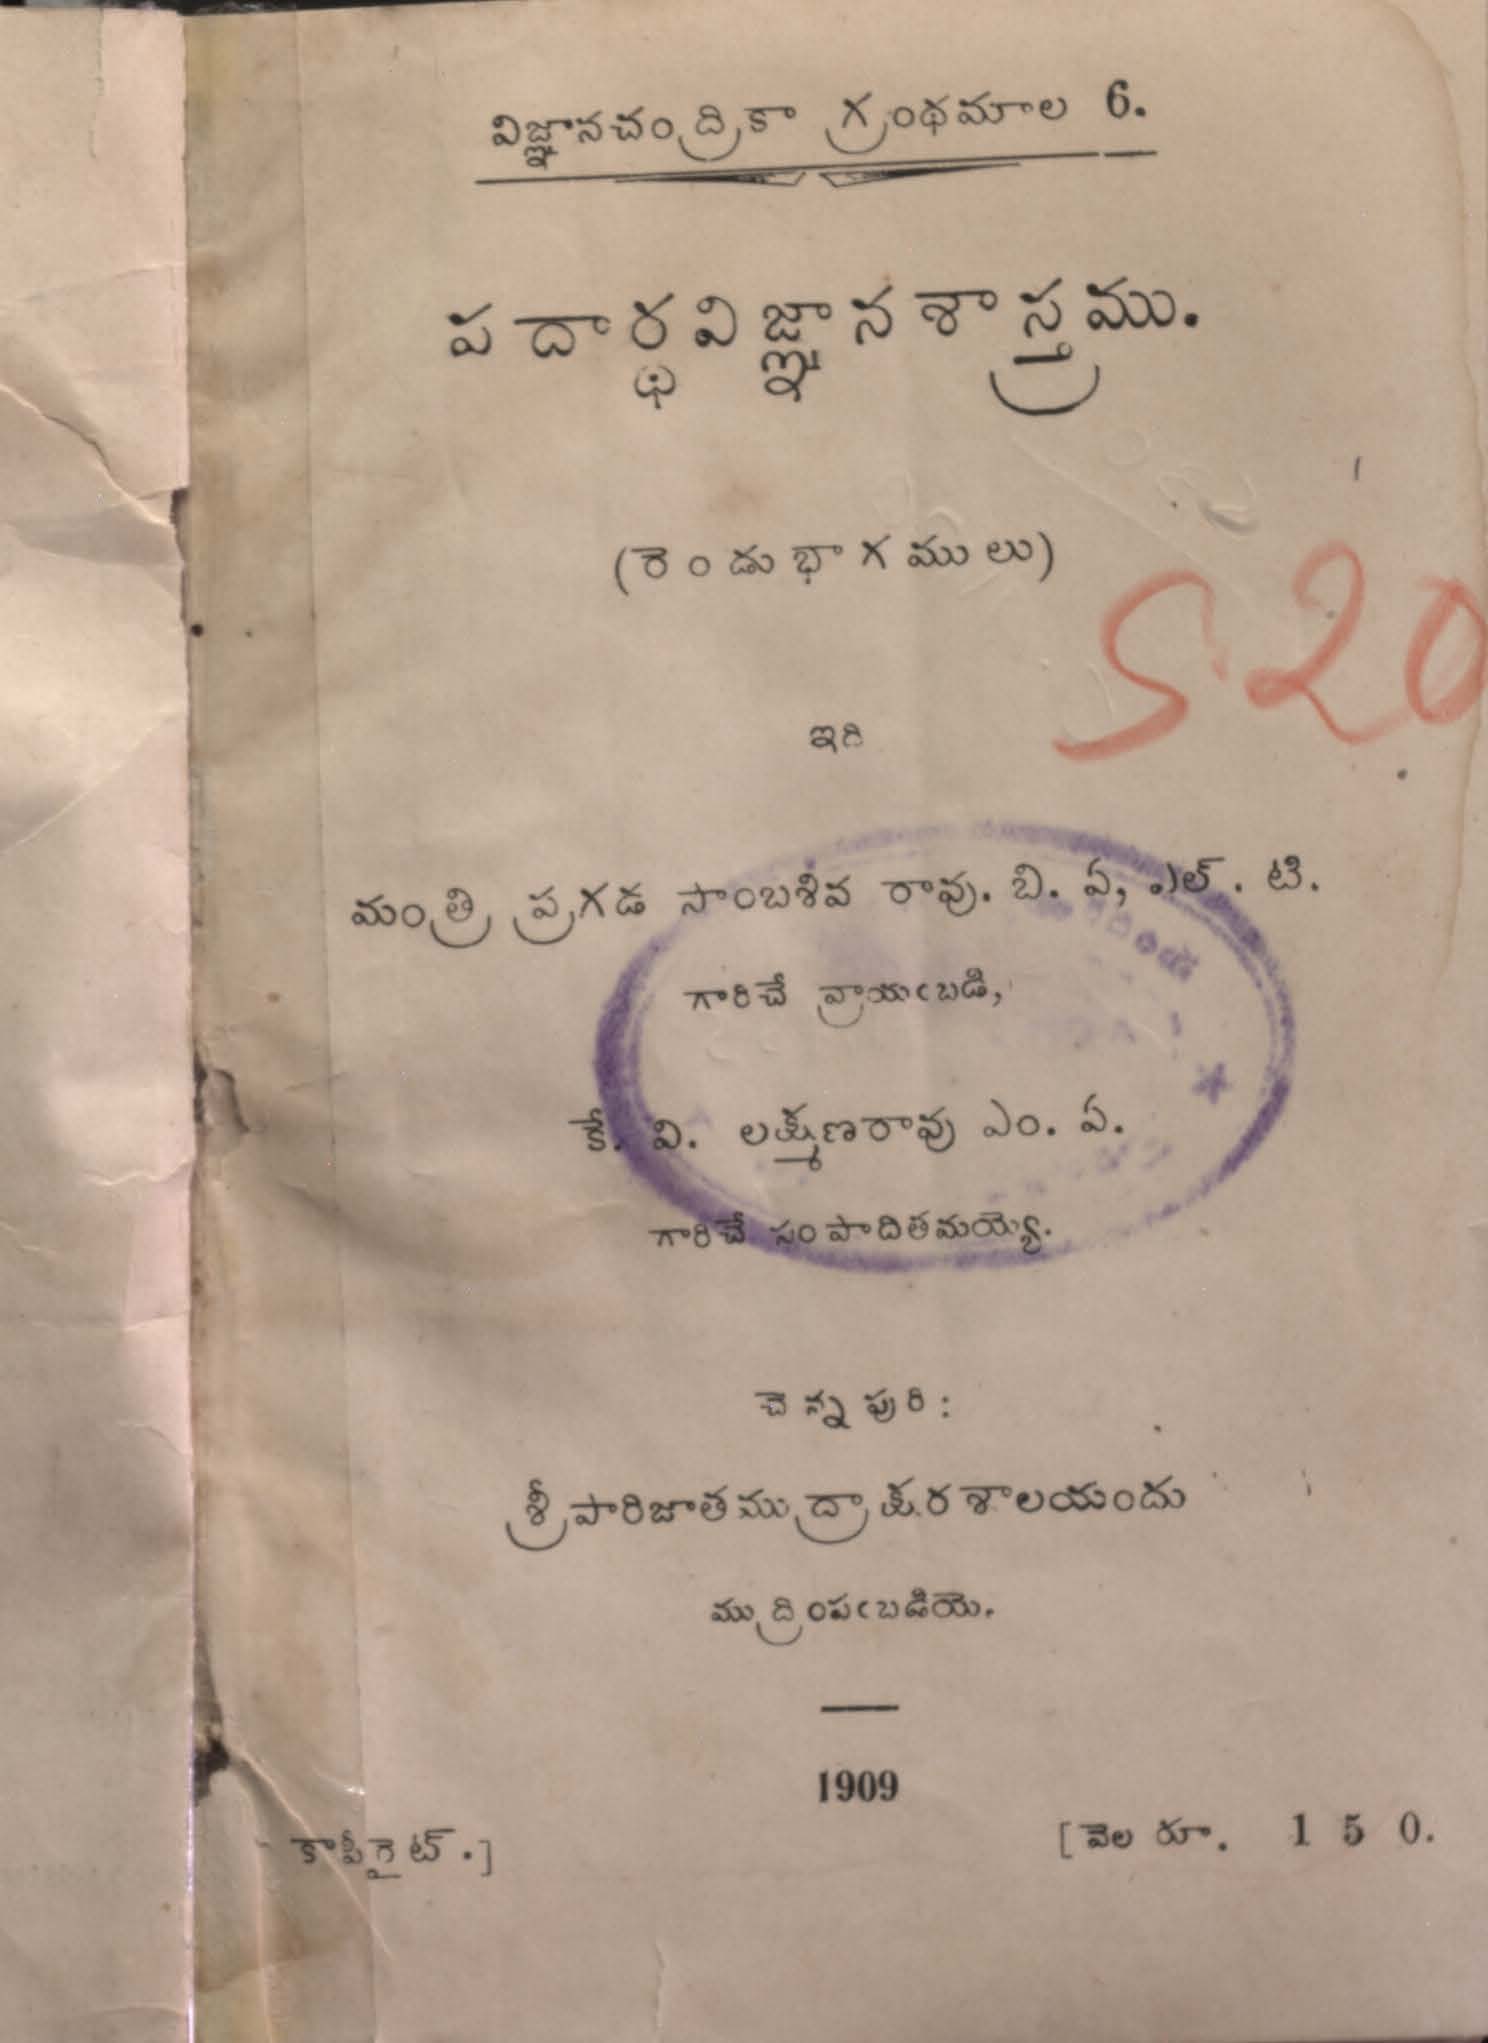 విజ్ఞానచంద్రికా గ్రంథమాల 6.
పదార్థవిజ్ఞానశాస్త్రము.
(రెండుభాగములు)
S20
ఇది
మంత్రిప్రగడ సాంబశివ రావు. బి. ఏ, ఎల్. టి.
గారిచే వ్రాయఁబడి,
కే. వి. లక్ష్మణరావు ఎం. ఏ.
గారిచే సంపాదితమయ్యె.
చెన్నపురి:
శ్రీపారిజాతముద్రాక్షరశాలయందు
ముద్రింపఁబడియె.
1909
కాపీరైట్.] [వెల రూ. 1 5 0.